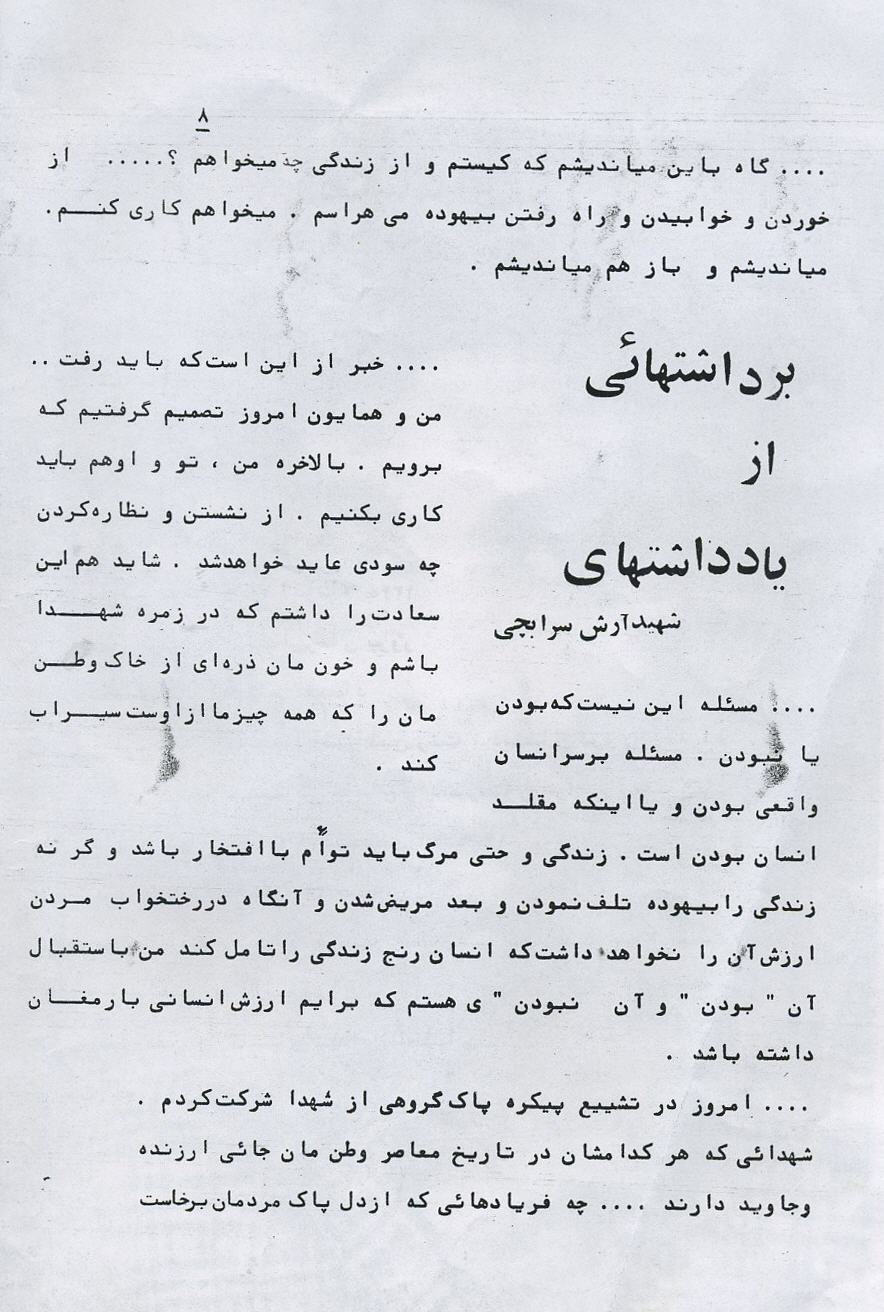 ۸
.... گاه باین میاندیشم که کیستم و از زندگی چه میخواهم ؟..... از
خوردن و خوابیدن و راه رفتن بیهوده می هراسم . میخواهم کاری کنـــم.
میاندیشم و باز هم میاندیشم .
برداشتهائی
از
یادداشتهای
شهید آرش سرابچی
.... خبر از این است که باید رفت ..
من و همایون امروز تصمیم گرفتیم که
برویم . بالاخره من ، تو و اوهم باید
کاری بکنیم . از نشستن و نظاره کردن
چه سودی عاید خواهدشد . شاید هم این
سعادت را داشتم که در زمره شهـــدا
باشم و خون مان ذره‌ای از خاک وطـن
مان را که همه چیزما ازاوست سیــراب
کند .
.... مسئله این نیست که بودن
یا نبودن . مسئله برسرانسان
واقعی بودن و یا اینکه مقلـد
انسان بودن است . زندگی و حتی مرگ باید توأم باافتخار باشد و گر نه
زندگی را بیهوده تلف نمودن و بعد مریض شدن و آنگاه دررختخواب مـردن
ارزش آن را نخواهد داشت که انسان رنج زندگی را تامل کند من باستقبال
آن " بودن " و آن نبودن " ی هستم که برایم ارزش انسانی بارمغـــان
داشته باشد .
.... امروز در تشییع پیکره پاک گروهی از شهدا شرکت کردم .
شهدائی که هر کدامشان در تاریخ معاصر وطن مان جائی ارزنده
وجاوید دارند .... چه فریادهائی که ازدل پاک مردمان برخاست